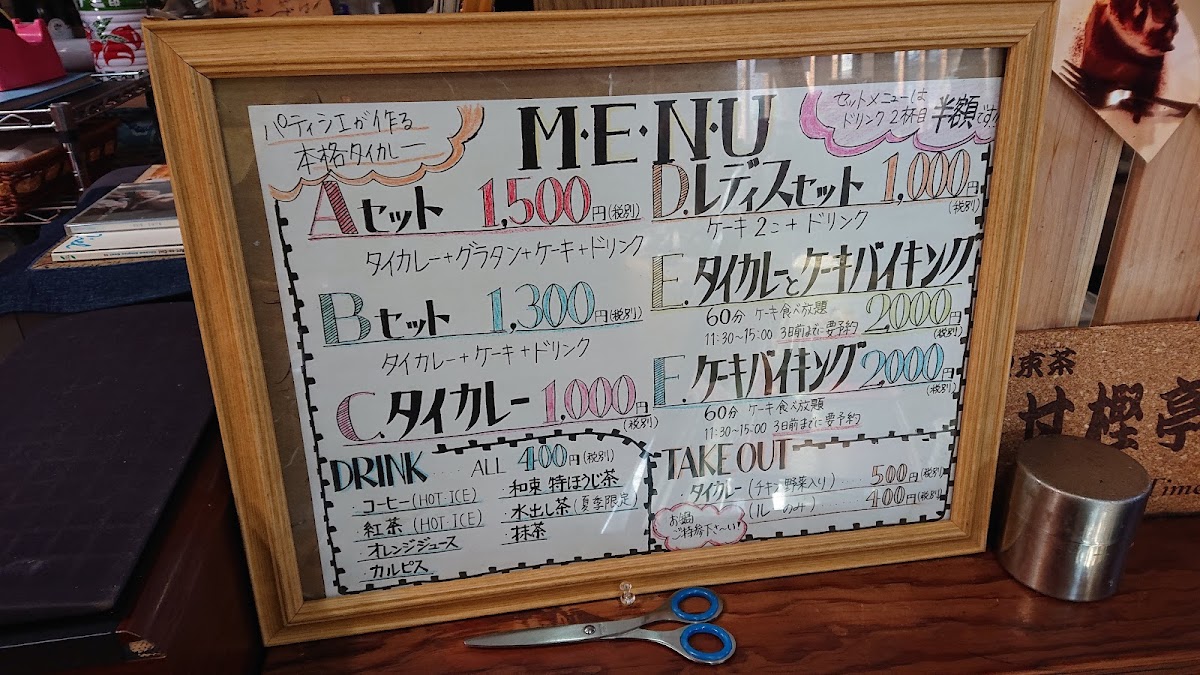 パティシエが作る
本格タイカレー
M・E・N・U
セットメニューは
ドリンク2杯目 半額です
Aセット 1,500円(税別)
タイカレー+グラタン+ケーキ+ドリンク
Bセット 1,300円(税別)
タイカレー+ケーキ+ドリンク
C.タイカレー 1,000円
(税別)
D.レディスセット 1,000円
(税別)
ケーキ2こ+ドリンク
E.タイカレーとケーキバイキング
60分 ケーキ食べ放題 2000円
11:30~15:00 3日前までに要予約 (税別)
F.ケーキバイキング 2,000円
(税別)
60分 ケーキ食べ放題
11:30~15:00 3日前までに要予約
DRINK ALL 400円(税別)
コーヒー(HOT・ICE)
紅茶(HOT・ICE)
オレンジジュース
カルピス
和束 特ほうじ茶
水出し茶(夏季限定)
抹茶
TAKE OUT
タイカレー(チキン野菜入り) 500円(税別)
(ルーのみ) 400円(税別)
お鍋
ご持参下さ~い!
束茶
甘樫亭
Time